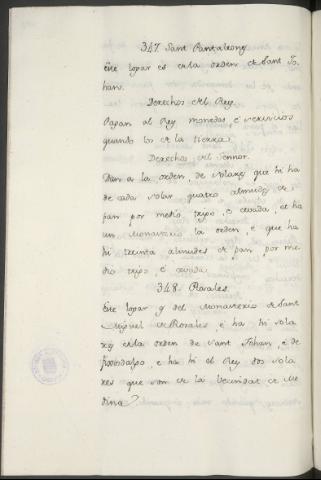 347 Sant Pantaleon
Este logar es de la orden de Sant Jo-
han.
Derechos del Rey.
Pagan al Rey monedas, e servicios
quando los de la tierra.
Derechos del Sennor.
Dan a la orden, de solares que hi ha
de cada solar quatro almudes de
pan por medio, trigo, e cevada, et ha
un monasterio la orden, e que ha
hi treinta almudes de pan por me-
dio trigo e cevada.
348. Rosales.
Este logar es del Monasterio de Sant
Miguel de Rosales, e ha hi sola
res de la orden de Sant Johan, e de
fijosdalgo, e ha hi el Rey dos sola
res que son de la vecindat de Me-
dina.